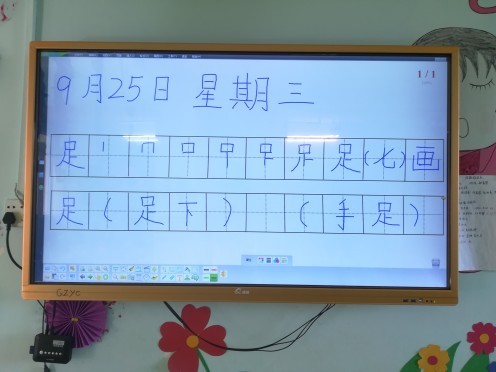 9月25日 星期三
1/1
足 丨 冂 口 𠮛 𧾷 足 足 (七)画
足(足下) (手足)
GZYC